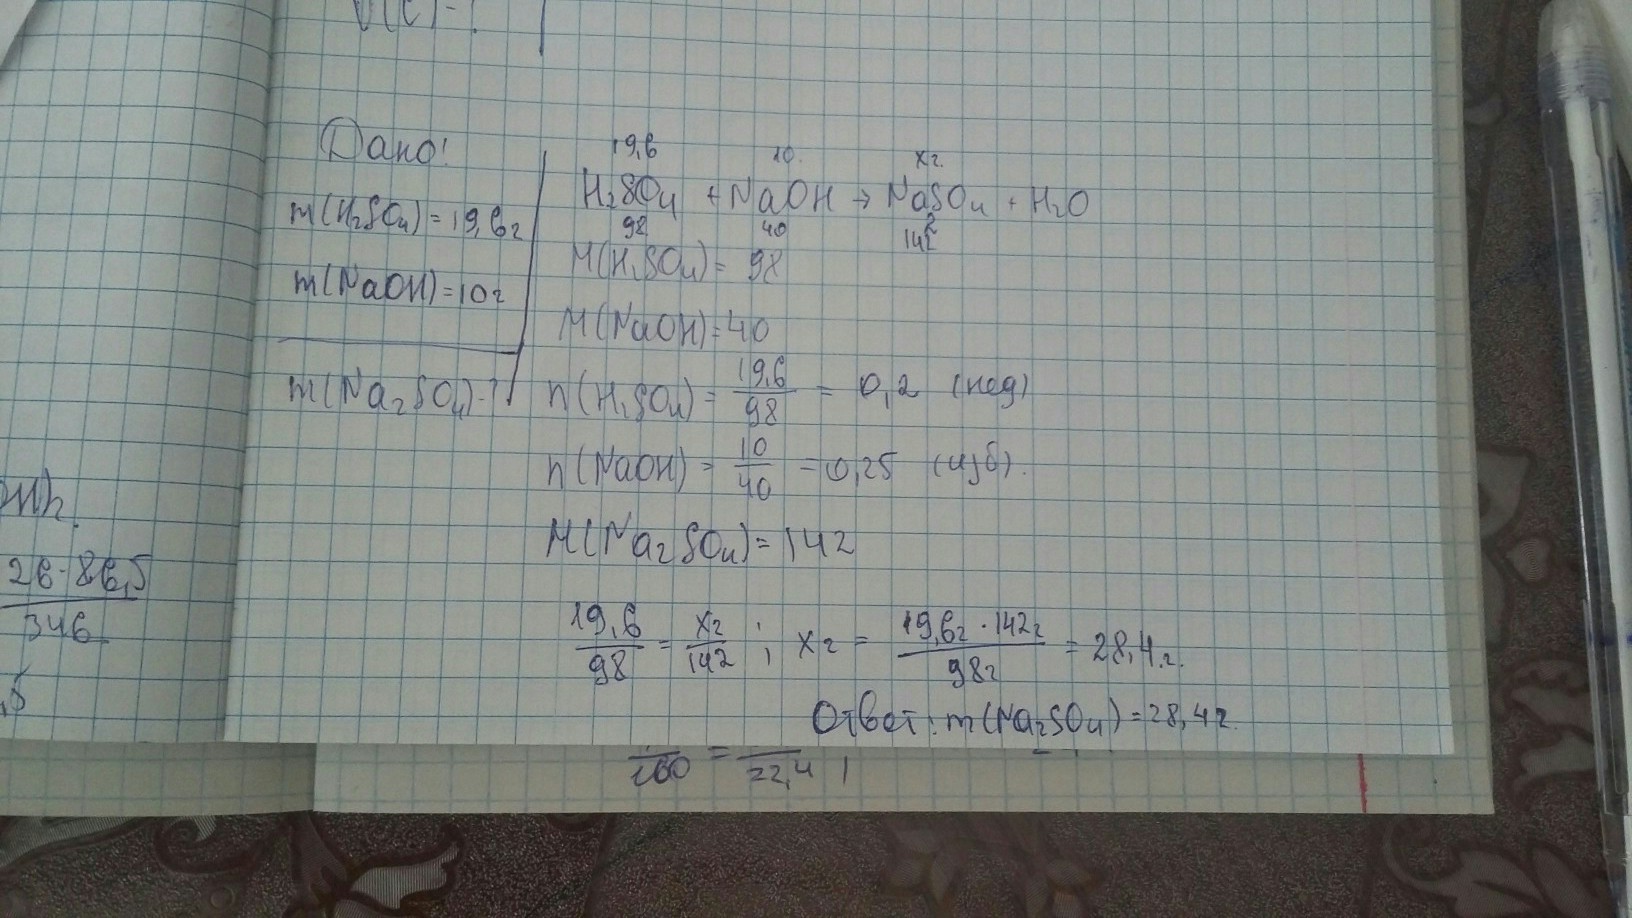 V(C)-?
Дано!
m(H₂SO₄)=19,6г
m(NaOH)=10г
m(Na₂SO₄)-?
19,6 10. xг.
H₂SO₄ + NaOH → Na₂SO₄ + H₂O
98 40 142
M(H₂SO₄)= 98
M(NaOH)=40
n(H₂SO₄)= 19,6/98 = 0,2 (нед)
n(NaOH)= 10/40 =0,25 (изб).
M(Na₂SO₄)=142
19,6/98 = xг/142 ; xг = 19,6г·142г/98г = 28,4г.
Ответ: m(Na₂SO₄)=28,4г.
26·86,5
346
,5
160 = 22,4